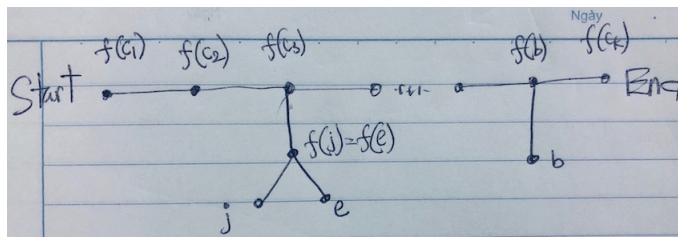 Ngày
f(c₁) f(c₂) f(c₃) f(b) f(cₖ)
Start End
f(j)=f(e)
b
j e